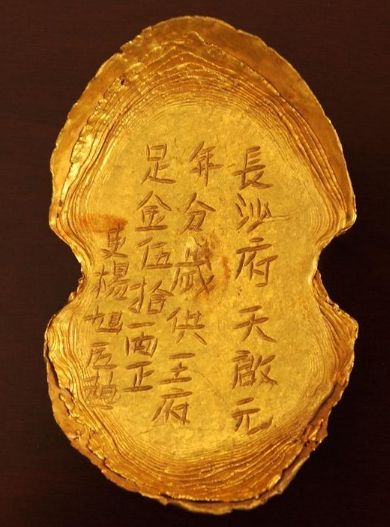 長沙府 天啟元
年分歲供王府
足金伍拾兩正
吏楊旭匠趙